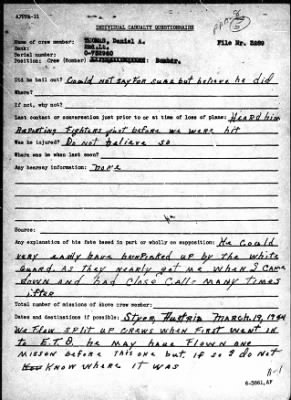 AFPPA-11
INDIVIDUAL CASUALTY QUESTIONNAIRE
Name of crew member: THOMAS, Daniel A. File Nr. 3289
Rank: 2nd Lt.
Serial number:
Position: Crew (Bomber) Bombdr.
Did he bail out? Could not say for sure but believe he did
Where?
If not, why not?
Last contact or conversation just prior to or at time of loss of plane: Heard him
Reporting fighters just before we were hit
Was he injured? Do not believe so
Where was he when last seen?
Any hearsay information: none
Source:
Any explanation of his fate based in part or wholly on supposition: He could
very easily have been picked up by the white
Guard. As they nearly got me when I came
down and had close calls many times
after
Total number of missions of above crew member:
Dates and destinations if possible: Styer, Austria March, 19, 1944
We flew split up crews when first went in
to E.T.O. he may have flown one
misson before this one but, if so I do not
Know where it was
A-1
6-3861,AF